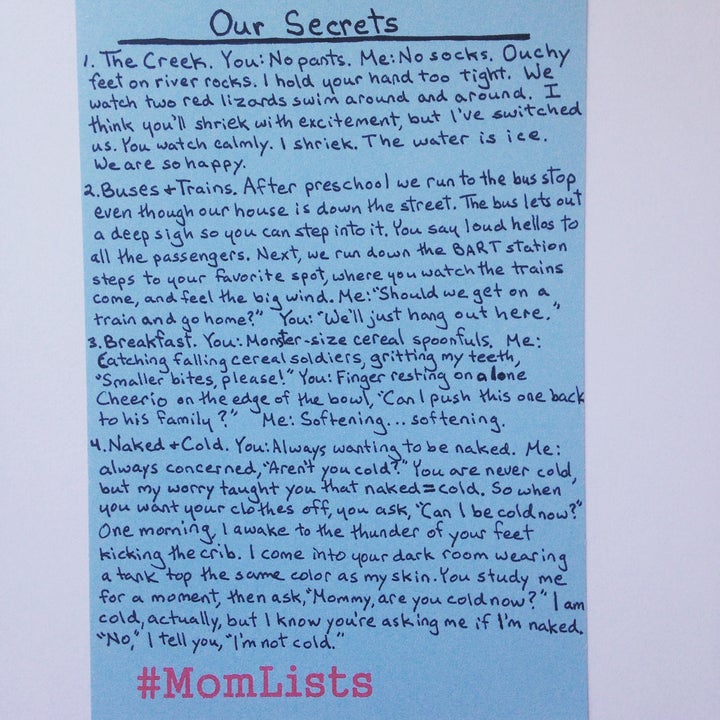 Our Secrets
1. The Creek. You: No pants. Me: No socks. Ouchy
feet on river rocks. I hold your hand too tight. We
watch two red lizards swim around and around. I
think you'll shriek with excitement, but I've switched
us. You watch calmly. I shriek. The water is ice.
We are so happy.
2. Buses + Trains. After preschool we run to the bus stop
even though our house is down the street. The bus lets out
a deep sigh so you can step into it. You say loud hellos to
all the passengers. Next, we run down the BART station
steps to your favorite spot, where you watch the trains
come, and feel the big wind. Me: "Should we get on a
train and go home?" You: "We'll just hang out here."
3. Breakfast. You: Monster-size cereal spoonfuls. Me:
Catching falling cereal soldiers, gritting my teeth,
"Smaller bites, please!" You: Finger resting on a lone
Cheerio on the edge of the bowl, "Can I push this one back
to his family?" Me: Softening... softening.
4. Naked + Cold. You: Always wanting to be naked. Me:
always concerned, "Aren't you cold?" You are never cold,
but my worry taught you that naked = cold. So when
you want your clothes off, you ask, "Can I be cold now?"
One morning, I awake to the thunder of your feet
kicking the crib. I come into your dark room wearing
a tank top the same color as my skin. You study me
for a moment, then ask, "Mommy, are you cold now?" I am
cold, actually, but I know you're asking me if I'm naked.
"No," I tell you, "I'm not cold."
#MomLists